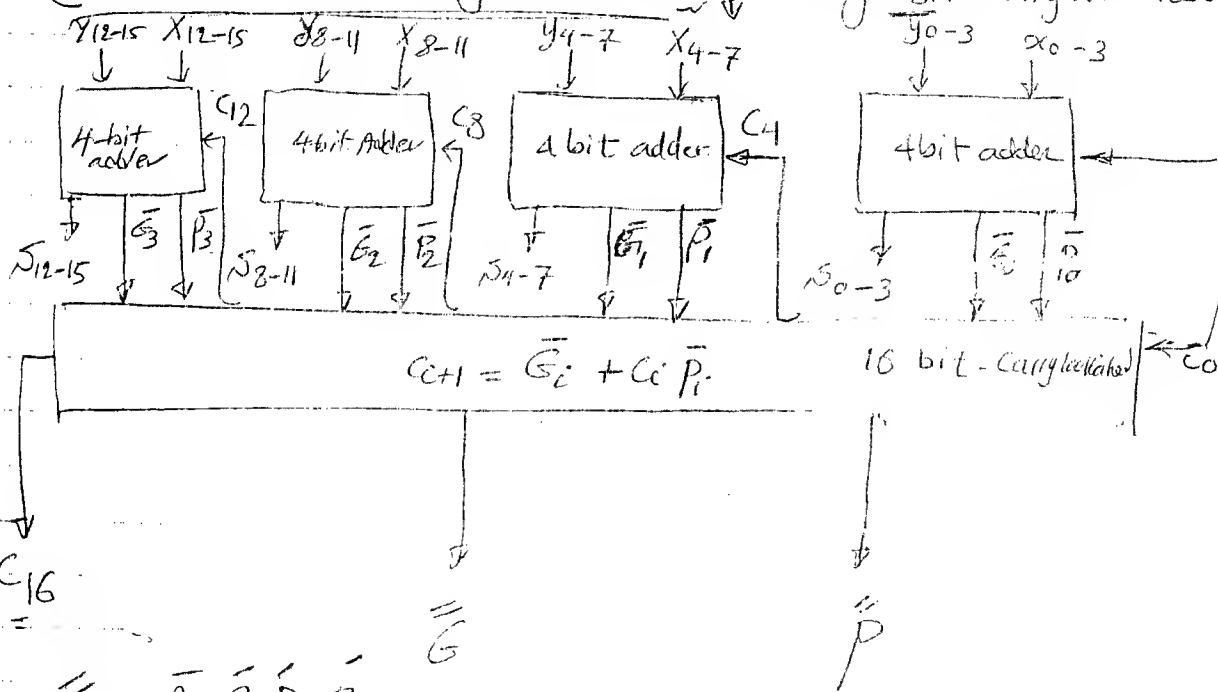 Y12-15 X12-15 Y8-11 X8-11 y4-7 X4-7 y0-3 x0-3
C12 C8 C4
4-bit adder
4bit Adder
4 bit adder
4bit adder
S12-15 Ḡ3 P̄3 S8-11 Ḡ2 P̄2 S4-7 Ḡ1 P̄1 S0-3
Ci+1 = Ḡi + Ci P̄i
16 bit - Carrylookahed
C0
C16
G̿ P̿